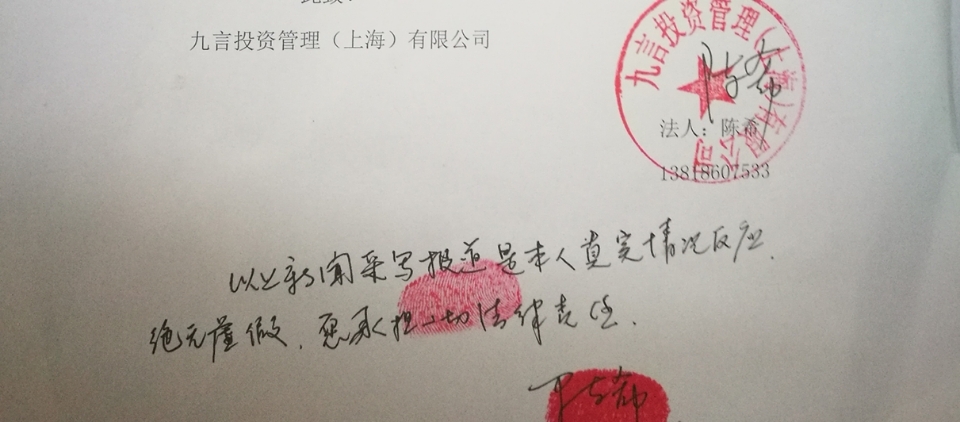 此致！
九言投资管理（上海）有限公司
九言投资管理（上海）有限公司
法人：陈希
13818607533
以上新闻采写报道是本人真实情况反应.
绝无虚假. 愿承担一切法律责任.